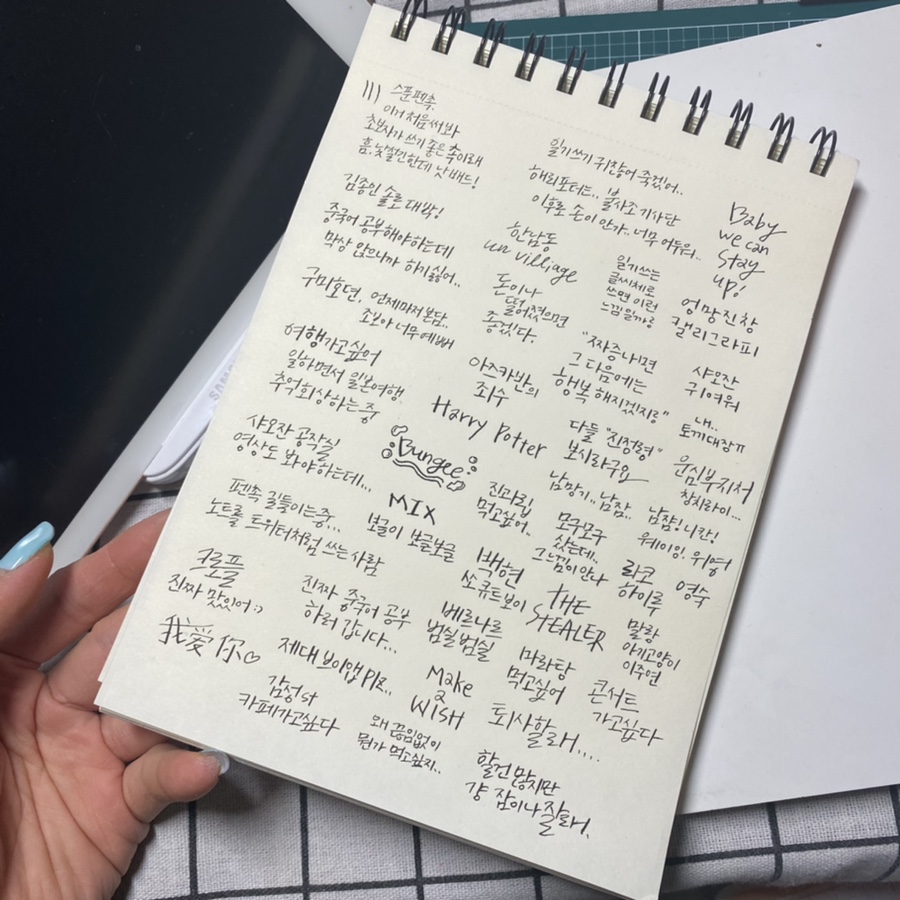 스푼펜촉.
이거 처음써봐
초보자가 쓰기 좋은 촉이래
흠. 낯설긴한데 낫배드!
김종인 솔로 대박!
중국어 공부해야하는데
막상 앉으니까 하기싫어..
구미호뎐, 언제마저본담..
조보아 너무예뻐
여행가고싶어
일하면서 일본여행
추억회상하는 중
샤오잔 공작실
영상도 봐야하는데...
펜촉 길들이는중...
노트를 트위터처럼 쓰는 사람
크로플
진짜 맛있어:)
我爱你♡
일기쓰기 귀찮어 죽겠어..
해리포터는.. 불사조 기사단
이후로 손이 안가.. 너무 어두워..
한남동
un villiage
돈이나
떨어졌으면
좋겠다.
아즈카반의
죄수
Harry Potter
Bungee
MIX
보글이 보글보글
진짜 중국어 공부
하러 갑니다...
제대 브이앱 Plz..
감성st
카페가고싶다
일기쓰는
글씨체로
쓰면 이런
느낌일까용
"짜증나면
그 다음에는
행복해지겠지용"
다들 "진정령"
보시라구요
진라면
먹고싶어..
백현
쏘큐트보이
베르나르
범실범실
Make
a
WISH
왜 끊임없이
뭔가 먹고싶지..
남망기.. 남잠..
모구모구
샀는데..
그 느낌이 안나
THE
STEALER
마라탕
먹고싶어
퇴사할래....
할건 많지만
걍 잠이나 잘래.
Baby
we can
stay
up!
엉망진창
캘리그라피
샤오잔
귀여워
내..
토끼대장ㅠ
운심부지처
창시라이...
남잠! 니칸!
웨이잉. 위영
랴코
하이루
영숙
말랑
아기고양이
이주연
콘서트
가고싶다
SAMSU